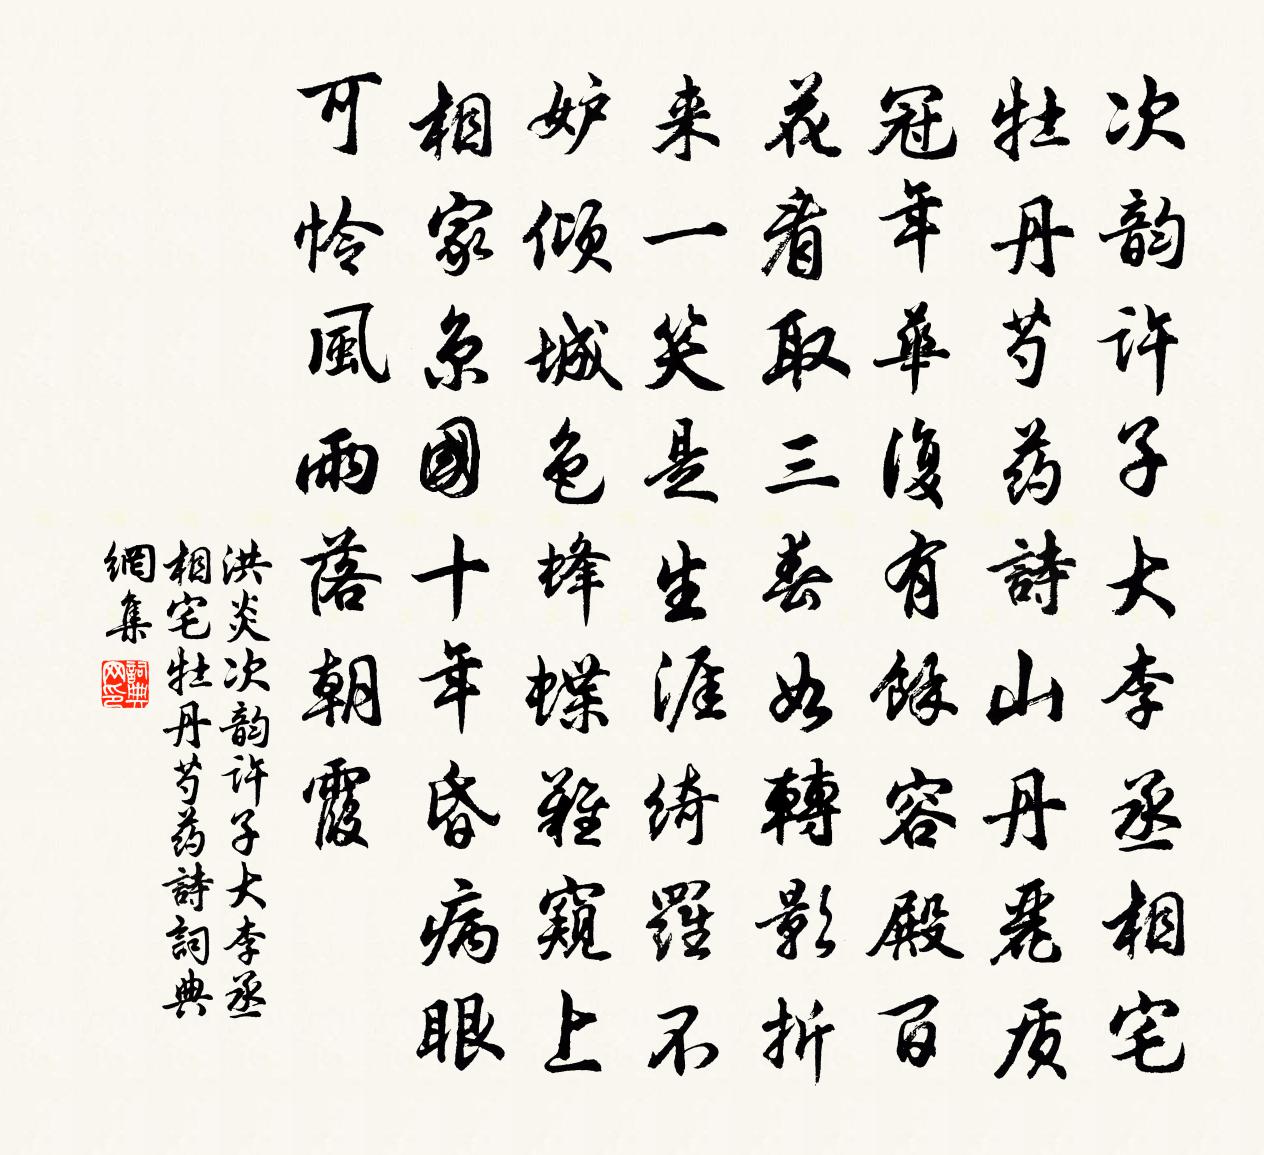 次韵許子大李丞相宅
牡丹芍药詩山丹麗质
冠年華復有餘容殿百
花看取三春如轉影折
来一笑是生涯綺羅不
妒傾城色蜂蝶難窺上
相家京國十年昏病眼
可怜風雨落朝霞
洪炎次韵許子大李丞
相宅牡丹芍药詩詞典
網集